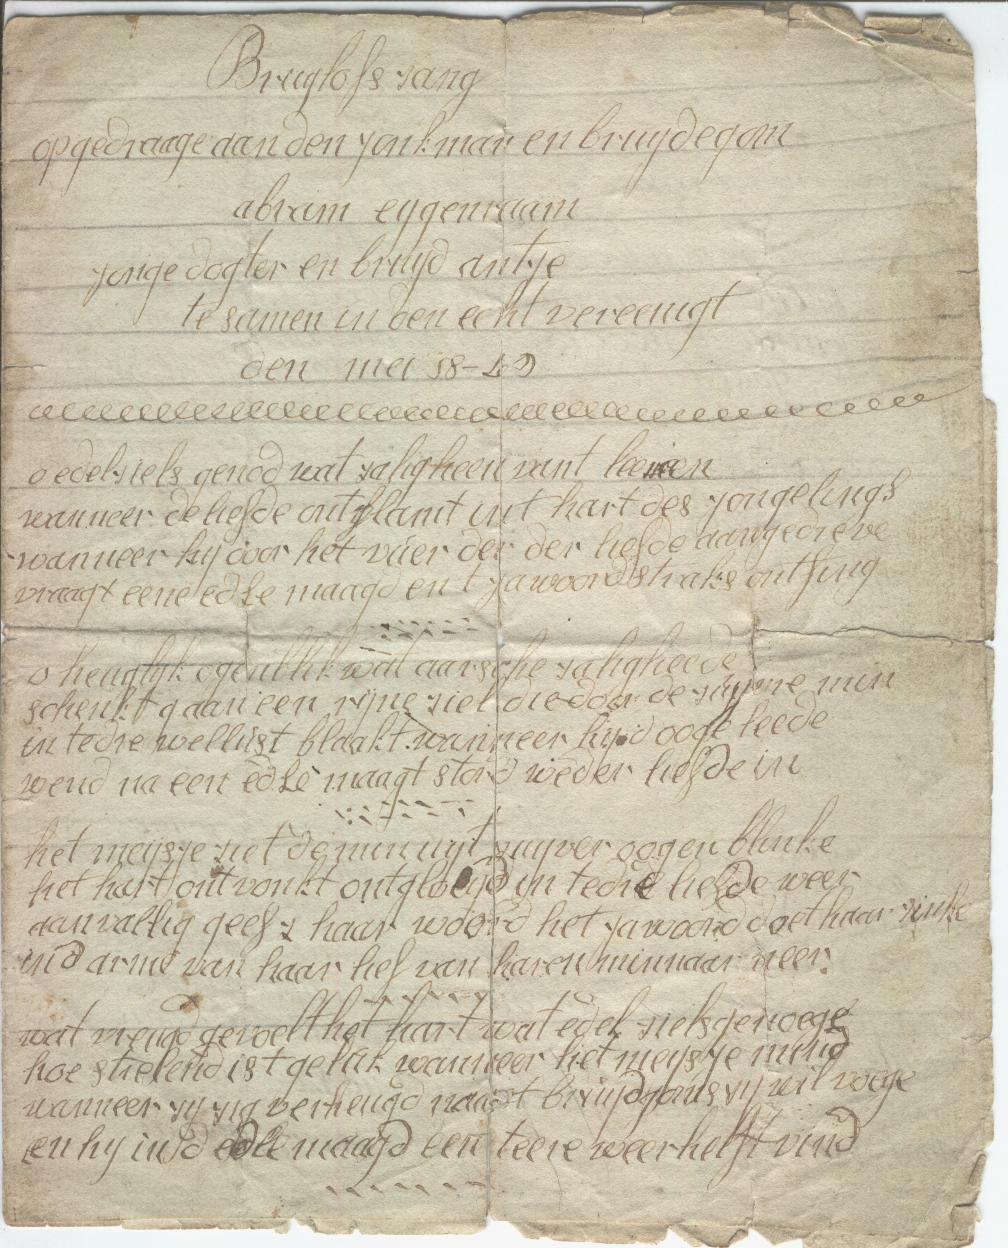 Bruylofs sang
opgedraage aan den jonkman en bruydegom
abram eygenraam
jonge dogter en bruyd antje
te samen in den echt vereenigt
den mei 18-49
o edel siels genod wat saligheen vant leeven
wanneer de liefde ontflamt int hart des jongelings
wanneer hy door het vuer der der liefde aangedreve
vraagt eene edle maagd en t jawoord straks ontfing
o heuglyk ogenblik wat aarsche saligheede
schenkt g aan een ryne siel die door de suyvre min
in tedre wellust blaakt wanneer hy d ooge leede
wend na een edle maagt stord weder liefde in
het meysje siet de min uyt suyver oogen blinke
het hart ontvonkt ontgloeyd in tedre liefde weer
aanvallig geeft haar woord het jawoord doet haar sinke
in d arme van haar lief van haren minnaar neer
wat vreugd gevoelt het hart wat edel siels genoege
hoe strelend is t geluk wanneer het meysje mind
wanneer sy sig verheugd naast bruydgoms sy wil voege
en hy in d edle maagd een teere weerhelft vind